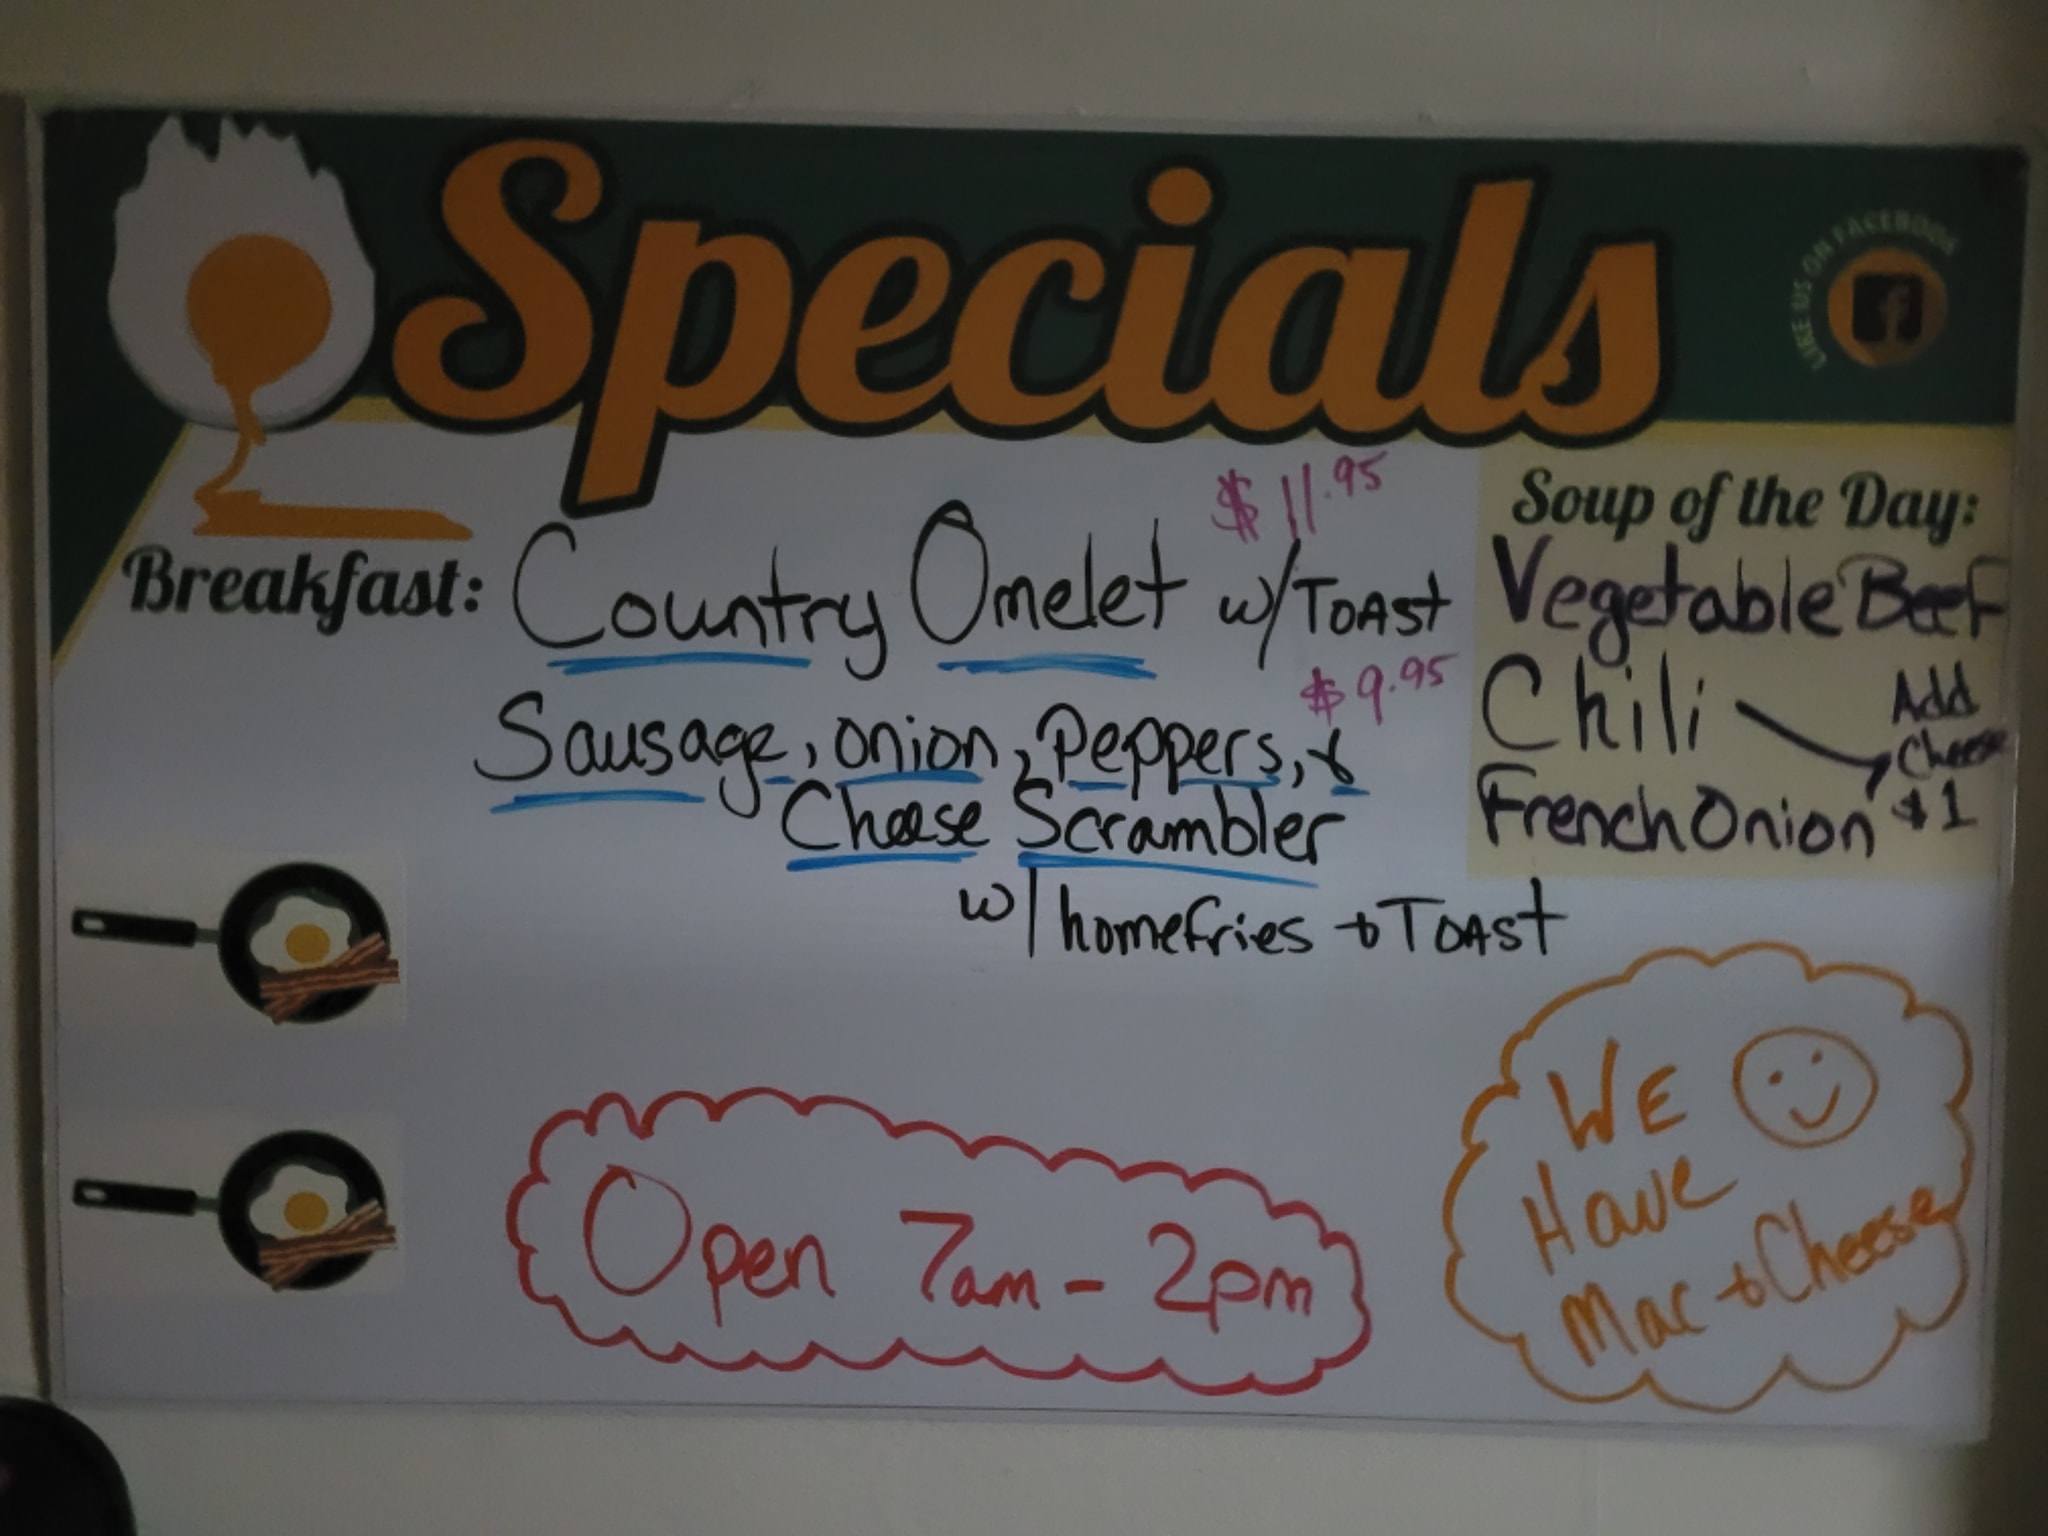 Specials
LIKE US ON FACEBOOK
f
$11.95
Breakfast: Country Omelet w/TOAST
$9.95
Sausage, onion, Peppers, &
Cheese Scrambler
w/ homefries & TOAST
Soup of the Day:
Vegetable Beef
Chili Add
Cheese
French Onion $1
Open 7am - 2pm
WE
Have
Mac & Cheese